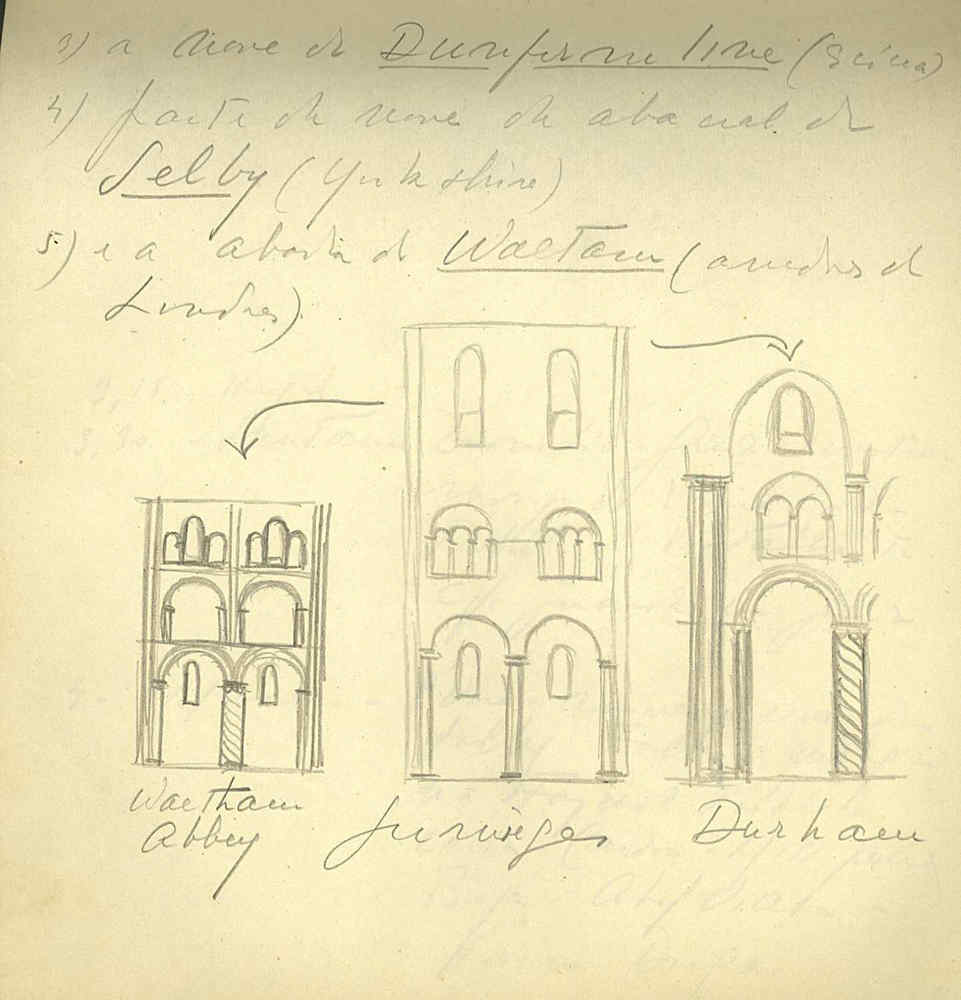 3) a nave de Dunfermline (Escócia)
4) parte da nave da abacial de
Selby (Yorkshire)
5) e a abadia de Waltam (arredores de
Londres)
Waltham
Abbey
Jumièges
Durham